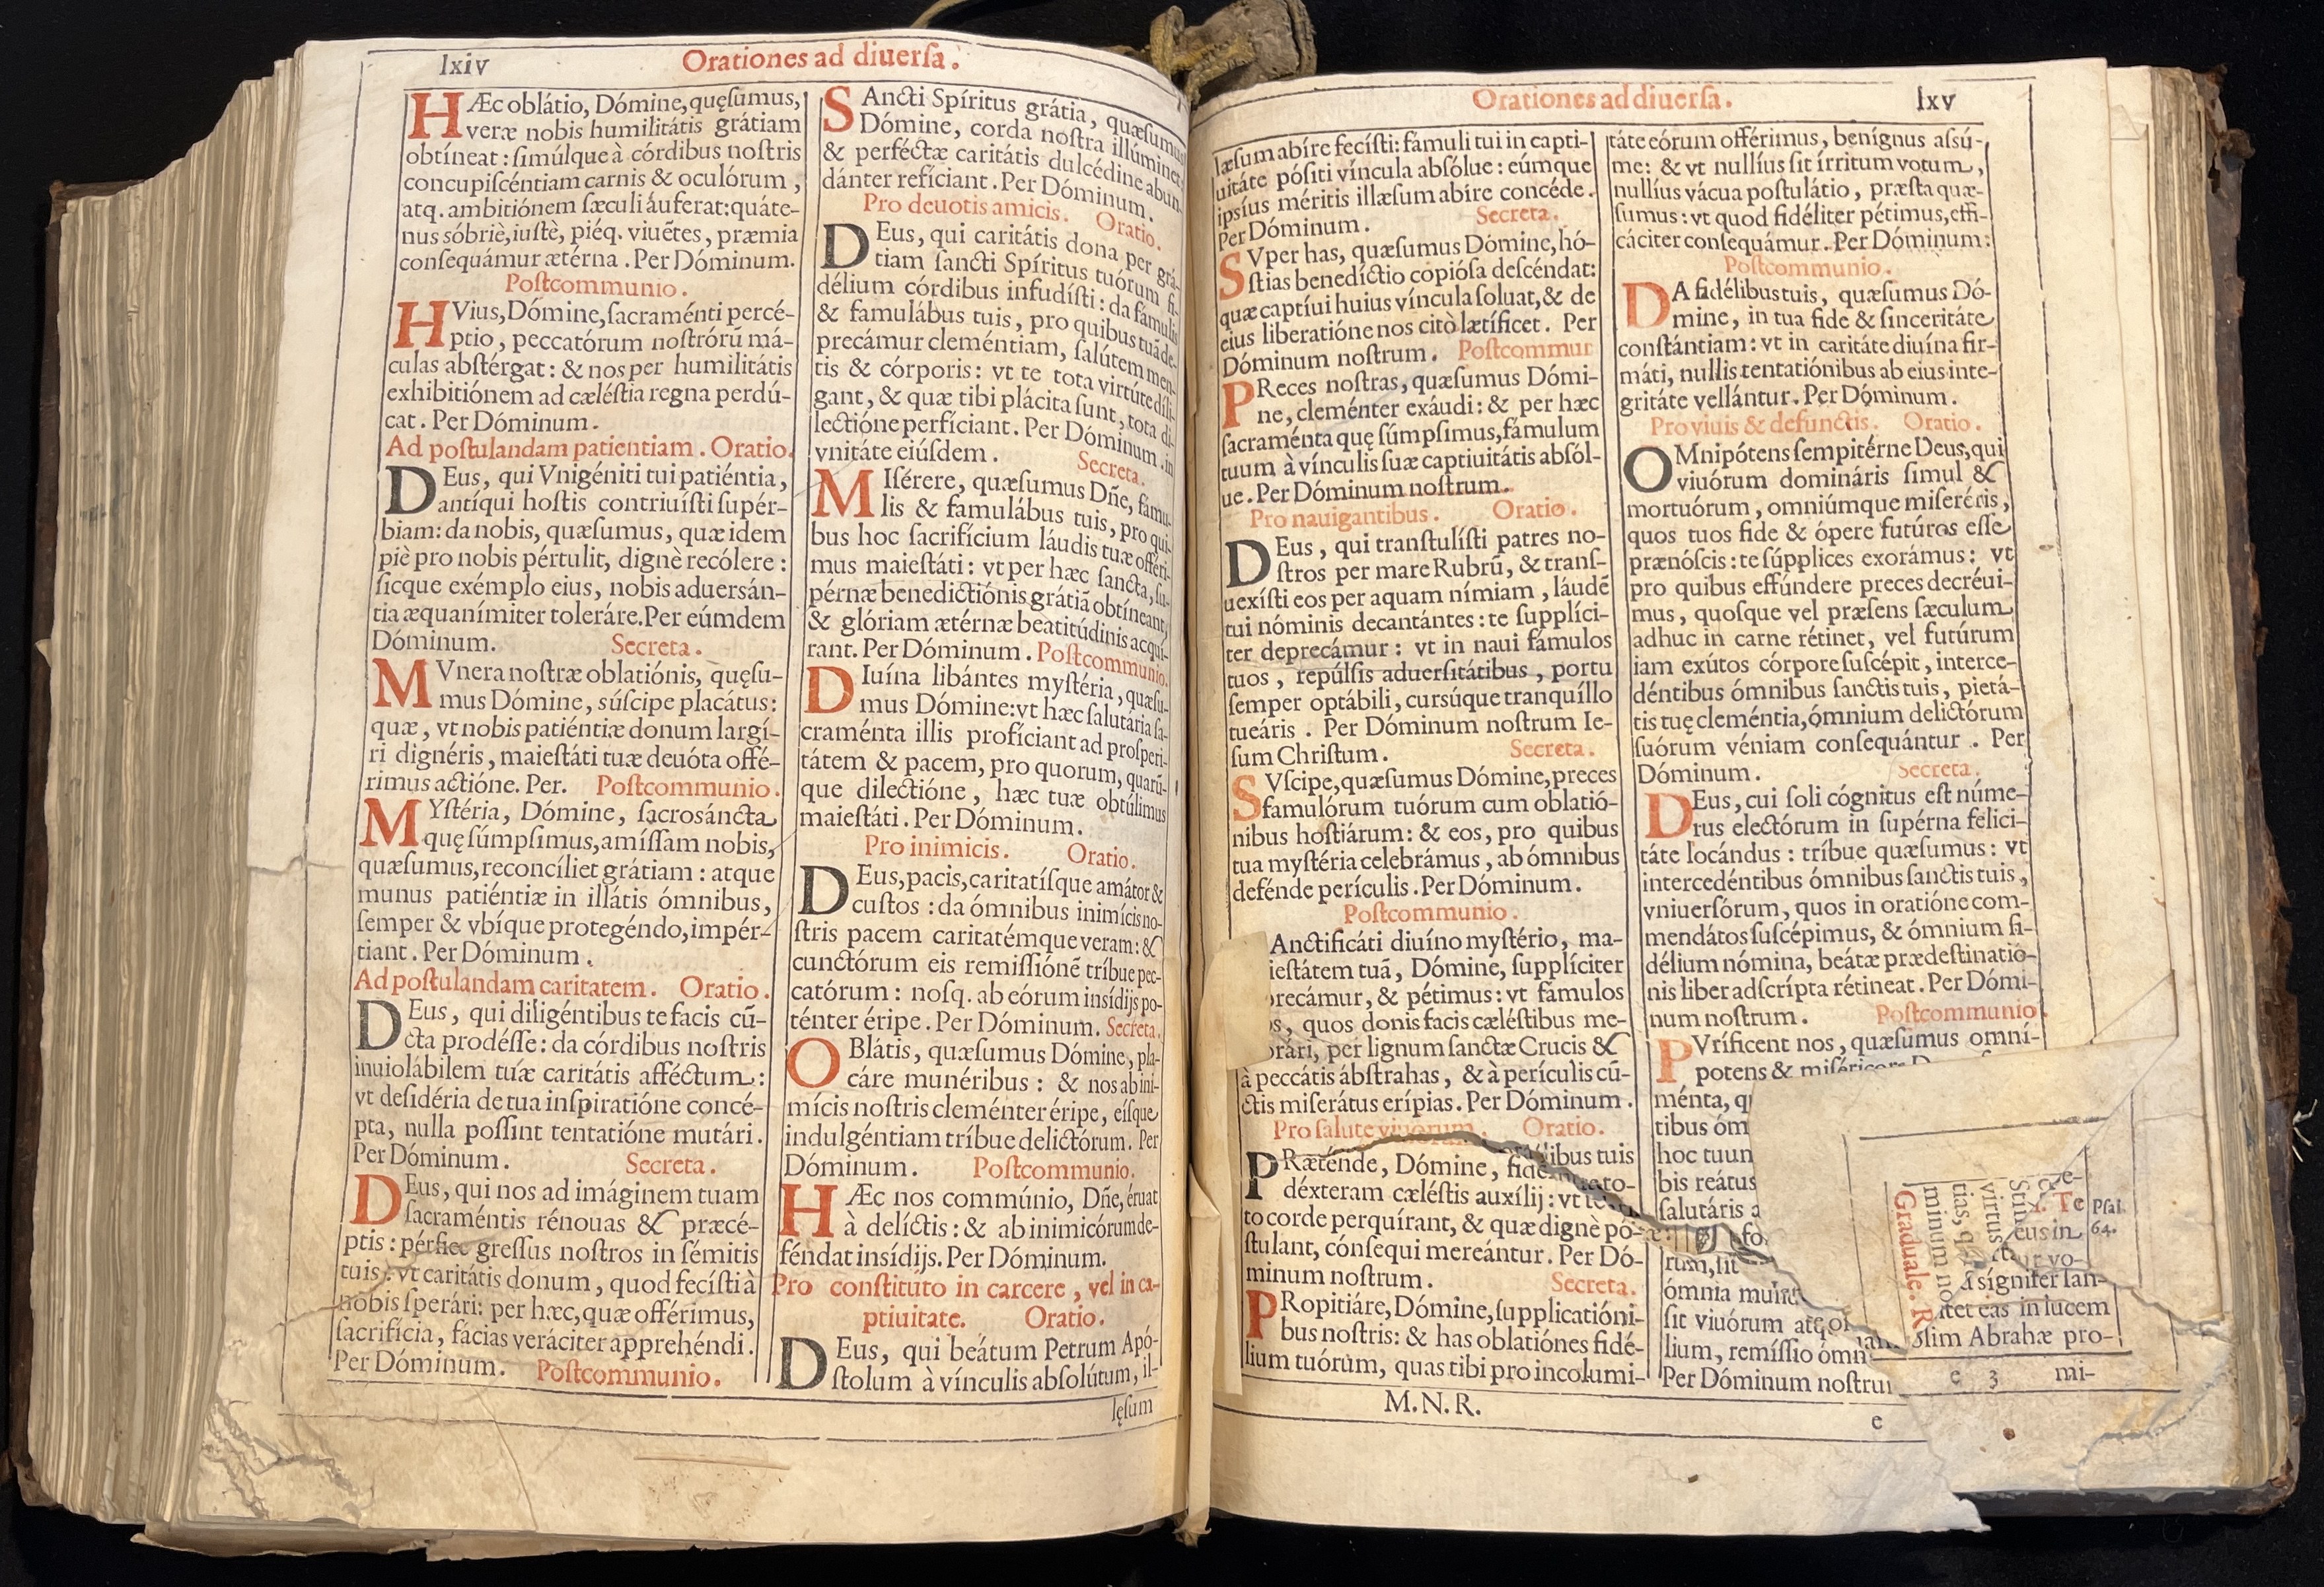 lxiv
Orationes ad diuerſa.
HÆc oblátio, Dómine, quęſumus,
veræ nobis humilitátis grátiam
obtíneat: ſimúlque à córdibus noſtris
concupiſcéntiam carnis & oculórum,
atq. ambitiónem ſæculi áuferat: quáte-
nus sóbriè, iuſtè, piéq. viuẽtes, præmia
conſequámur ætérna. Per Dóminum.
Poſtcommunio.
HVius, Dómine, ſacraménti percé-
ptio, peccatórum noſtrórũ má-
culas abſtérgat: & nos per humilitátis
exhibitiónem ad cæléſtia regna perdú-
cat. Per Dóminum.
Ad poſtulandam patientiam. Oratio.
DEus, qui Vnigéniti tui patiéntia,
antíqui hoſtis contriuíſti ſupér-
biam: da nobis, quæſumus, quæ idem
piè pro nobis pértulit, dignè recólere:
ſicque exémplo eius, nobis aduersán-
tia æquanímiter toleráre. Per eúmdem
Dóminum. Secreta.
MVnera noſtræ oblatiónis, quęſu-
mus Dómine, súſcipe placátus:
quæ, vt nobis patiéntiæ donum largí-
ri dignéris, maieſtáti tuæ deuóta offé-
rimus actióne. Per. Poſtcommunio.
MYſtéria, Dómine, ſacrosáncta
quę súmpſimus, amíſſam nobis,
quæſumus, reconcíliet grátiam: atque
munus patiéntiæ in illátis ómnibus,
ſemper & vbíque protegéndo, impér-
tiant. Per Dóminum.
Ad poſtulandam caritatem. Oratio.
DEus, qui diligéntibus te facis cũ-
cta prodéſſe: da córdibus noſtris
inuiolábilem tuæ caritátis afféctum:
vt deſidéria de tua inſpiratióne concé-
pta, nulla poſſint tentatióne mutári.
Per Dóminum. Secreta.
DEus, qui nos ad imáginem tuam
ſacraméntis rénouas & præcé-
ptis: pérfice greſſus noſtros in ſémitis
tuis: vt caritátis donum, quod fecíſti à
nobis ſperári: per hæc, quæ offérimus,
ſacrifícia, fácias veráciter apprehéndi.
Per Dóminum. Poſtcommunio.
SAncti Spíritus grátia, quæſumus
Dómine, corda noſtra illúminet:
& perféctæ caritátis dulcédine abun-
dánter refíciant. Per Dóminum.
Pro deuotis amicis. Oratio.
DEus, qui caritátis dona per grá-
tiam ſancti Spíritus tuórum fi-
délium córdibus infudíſti: da fámulis
& famulábus tuis, pro quibus tuã de-
precámur cleméntiam, ſalútem men-
tis & córporis: vt te tota virtúte díli-
gant, & quæ tibi plácita ſunt, tota di-
lectióne perfíciant. Per Dóminum. in
vnitáte eiúſdem. Secreta.
MIſérere, quæſumus Dñe, fámu-
lis & famulábus tuis, pro qui-
bus hoc ſacrifícium láudis tuæ offéri-
mus maieſtáti: vt per hæc ſancta, ſu-
pérnæ benedictiónis grátiã obtíneant,
& glóriam ætérnæ beatitúdinis acquí-
rant. Per Dóminum. Poſtcommunio.
DIuína libántes myſtéria, quæſu-
mus Dómine: vt hæc ſalutária ſa-
craménta illis profíciant ad proſperi-
tátem & pacem, pro quorum, quarũ-
que dilectióne, hæc tuæ obtúlimus
maieſtáti. Per Dóminum.
Pro inimicis. Oratio.
DEus, pacis, caritatíſque amátor &
cuſtos: da ómnibus inimícis no-
ſtris pacem caritatémque veram: &
cunctórum eis remiſſiónẽ tríbue pec-
catórum: noſq. ab eórum insídijs po-
ténter éripe. Per Dóminum. Secreta.
OBlátis, quæſumus Dómine, pla-
cáre munéribus: & nos ab ini-
mícis noſtris cleménter éripe, eíſque
indulgéntiam tríbue delictórum. Per
Dóminum. Poſtcommunio.
HÆc nos commúnio, Dñe, éruat
à delíctis: & ab inimicórum de-
féndat insídijs. Per Dóminum.
Pro conſtituto in carcere, vel in ca-
ptiuitate. Oratio.
DEus, qui beátum Petrum Apó-
ſtolum à vínculis abſolútum, il-
lęſum
Orationes ad diuerſa.
lxv
læſum abíre fecíſti: fámuli tui in capti-
uitáte póſiti víncula abſólue: eúmque
ipsíus méritis illæſum abíre concéde.
Per Dóminum. Secreta.
SVper has, quæſumus Dómine, hó-
ſtias benedíctio copióſa deſcéndat:
quæ captíui huius víncula ſoluat, & de
eius liberatióne nos citò lætíficet. Per
Dóminum noſtrum. Poſtcommun
PReces noſtras, quæſumus Dómi-
ne, cleménter exáudi: & per hæc
ſacraménta quę súmpſimus, fámulum
tuum à vínculis ſuæ captiuitátis abſól-
ue. Per Dóminum noſtrum.
Pro nauigantibus. Oratio.
DEus, qui tranſtulíſti patres no-
ſtros per mare Rubrũ, & tranſ-
uexíſti eos per aquam nímiam, láudẽ
tui nóminis decantántes: te ſupplíci-
ter deprecámur: vt in naui fámulos
tuos, repúlſis aduerſitátibus, portu
ſemper optábili, cursúque tranquíllo
tueáris. Per Dóminum noſtrum Ie-
ſum Chriſtum. Secreta.
SVſcipe, quæſumus Dómine, preces
famulórum tuórum cum oblatió-
nibus hoſtiárum: & eos, pro quibus
tua myſtéria celebrámus, ab ómnibus
defénde perículis. Per Dóminum.
Poſtcommunio.
Anctificáti diuíno myſtério, ma-
ieſtátem tuã, Dómine, ſupplíciter
precámur, & pétimus: vt fámulos
s, quos donis facis cæléſtibus me-
orári, per lignum ſanctæ Crucis &
à peccátis ábſtrahas, & à perículis cũ-
ctis miſerátus erípias. Per Dóminum.
Pro ſalute viuorum. Oratio.
PRæténde, Dómine, fidélibus tuis
déxteram cæléſtis auxílij: vt te to-
to corde perquírant, & quæ dignè pó-
ſtulant, cónſequi mereántur. Per Dó-
minum noſtrum. Secreta.
PRopitiáre, Dómine, ſupplicatióni-
bus noſtris: & has oblatiónes fidé-
lium tuórum, quas tibi pro incolumi-
M. N. R.
táte eórum offérimus, benígnus aſsú-
me: & vt nullíus ſit írritum votum,
nullíus vácua poſtulátio, præſta quæ-
ſumus: vt quod fidéliter pétimus, effi-
cáciter conſequámur. Per Dóminum:
Poſtcommunio.
DA fidélibus tuis, quæſumus Dó-
mine, in tua fide & ſinceritáte
conſtántiam: vt in caritáte diuína fir-
máti, nullis tentatiónibus ab eius inte-
gritáte vellántur. Per Dóminum.
Pro viuis & defunctis. Oratio.
OMnipótens ſempitérne Deus, qui
viuórum domináris ſimul &
mortuórum, omniúmque miſeréris,
quos tuos fide & ópere futúros eſſe
prænóſcis: te súpplices exorámus: vt
pro quibus effúndere preces decréui-
mus, quoſque vel præſens ſæculum
adhuc in carne rétinet, vel futúrum
iam exútos córpore ſuſcépit, interce-
déntibus ómnibus ſanctis tuis, pietá-
tis tuę cleméntia, ómnium delictórum
ſuórum véniam conſequántur. Per
Dóminum. Secreta.
DEus, cui ſoli cógnitus eſt núme-
rus electórum in ſupérna felici-
táte locándus: tríbue quæſumus: vt
intercedéntibus ómnibus ſanctis tuis,
vniuerſórum, quos in oratióne com-
mendátos ſuſcépimus, & ómnium fi-
délium nómina, beátæ prædeſtinatió-
nis liber adſcrípta rétineat. Per Dómi-
num noſtrum. Poſtcommunio.
PVríficent nos, quæſumus omní-
potens & miſéricors
ménta, q
tibus óm
hoc tuun
bis reátus
ſalutáris a
rum, ſit
ómnia mun
ſit viuórum atq
lium, remíſſio ómn
Per Dóminum noſtrum
e
Graduale.
minum no
tias, q
virtus
. Te
Pſal.
64.
eus in
ur vo-
ſígnifer ſan-
tet eas in lucem
olim Abrahæ pro-
e 3
mi-